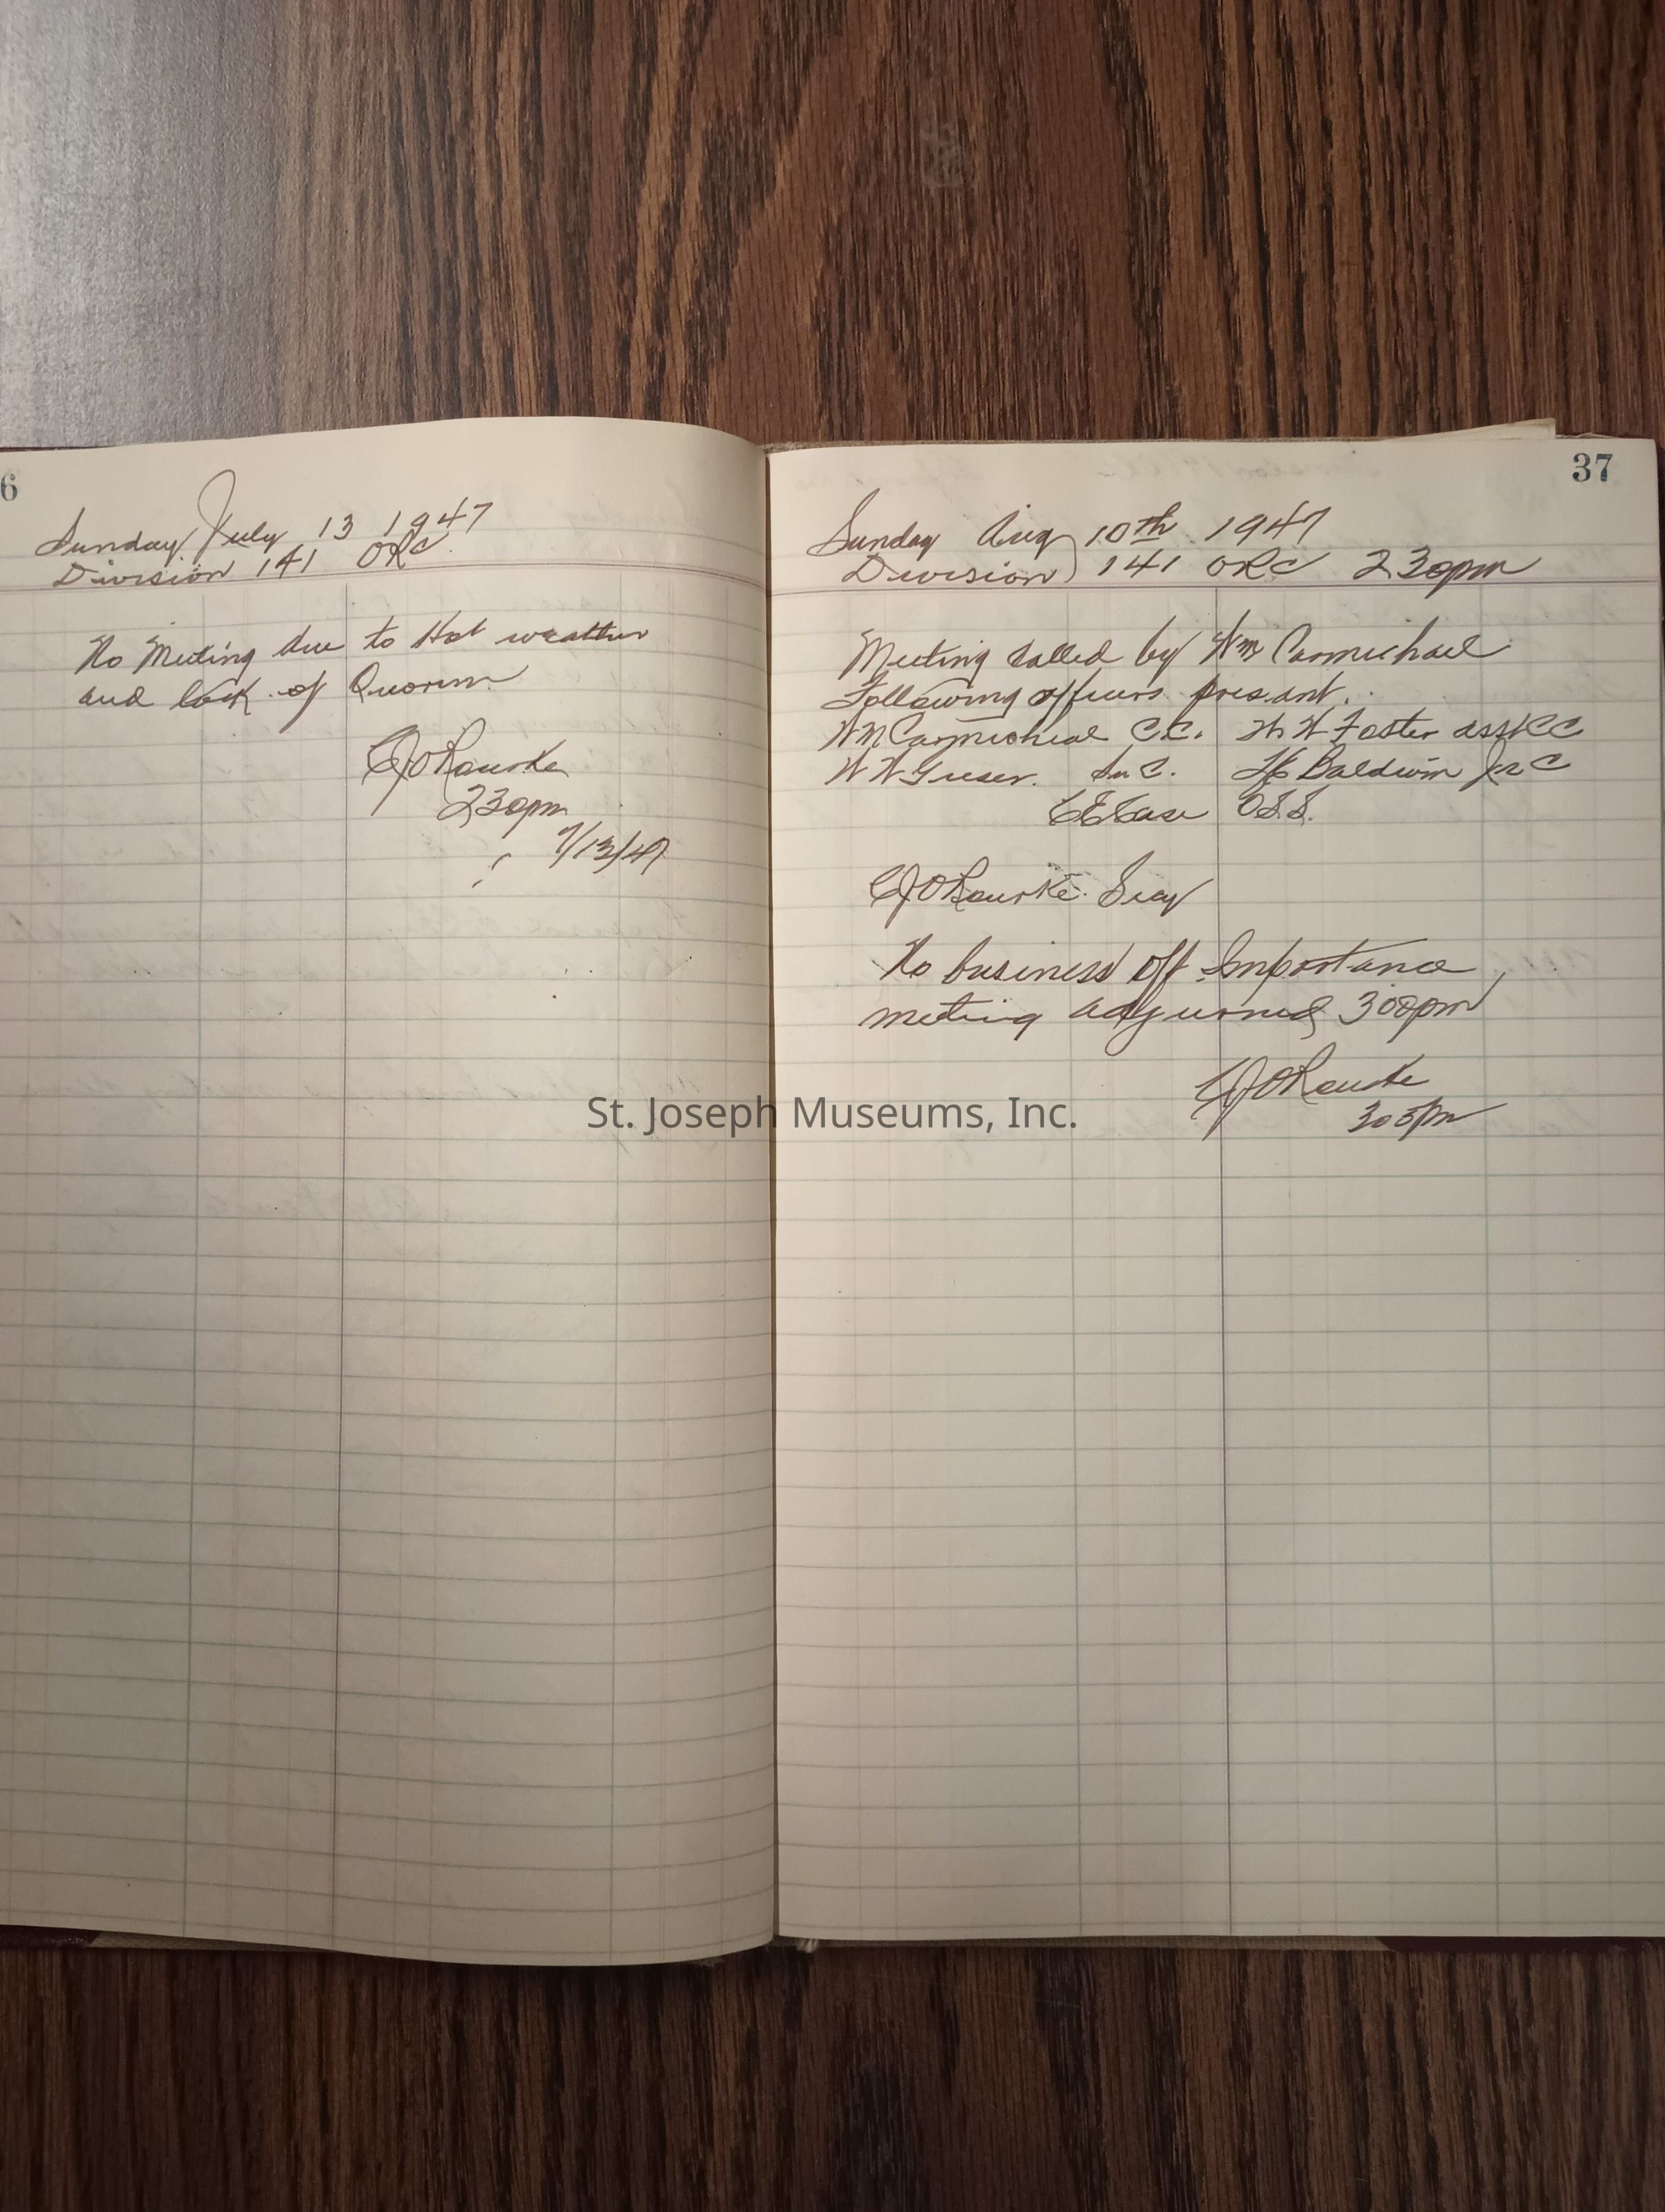 6
Sunday July 13 1947
Division 141 ORC
No Meeting due to Hot weather
and lack of Quorum
CJORourke
230pm
7/13/47
37
Sunday Aug 10th 1947
Division 141 ORC 230pm
Meeting Called by Wm Carmichael
Following officers present.
Wm Carmichael C.C. W W Foster asst CC
W W Sr C. Baldwin Jr C
CE Case O.S.S.
CJORourke Secy
No business off Importance
meeting adjurned 300pm
CJORourke
303pm
St. Joseph Museums, Inc.